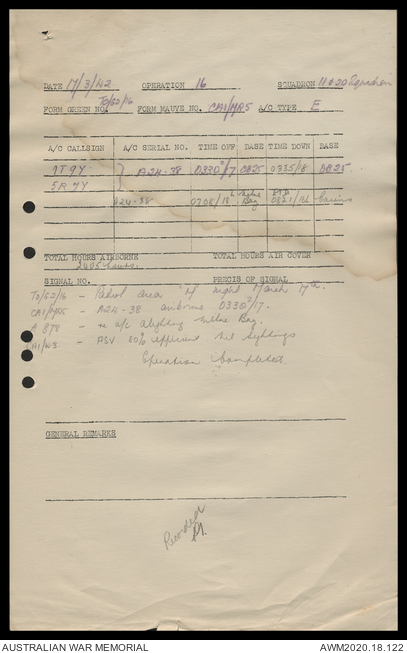 DATE 17/3/42 OPERATION 16 SQUADRON 11 & 20 Squadron
TO/52/16
FORM GREEN NO. FORM MAUVE NO. CA1/MR5 A/C TYPE E
A/C CALLSIGN A/C SERIAL NO. TIME OFF BASE TIME DOWN BASE
7T9Y } A24-38 0330Z/17 DB25 0335/18 DB25
5R7Y
A24-38 0708/18 Bay Cairns
TOTAL HOURS AIRBORNE TOTAL HOURS AIR COVER
24.05 hours.
SIGNAL NO. PRECIS OF SIGNAL
TO/52/16 - Patrol area night March 17th.
CA1/MR5 - A24-38 airborne 0330Z/17.
A 878 - re a/c alighting Bay.
CA1/W3 - ASV 80% efficient Nil Sightings
Operation Completed
GENERAL REMARKS
Recorded
AUSTRALIAN WAR MEMORIAL AWM2020.18.122